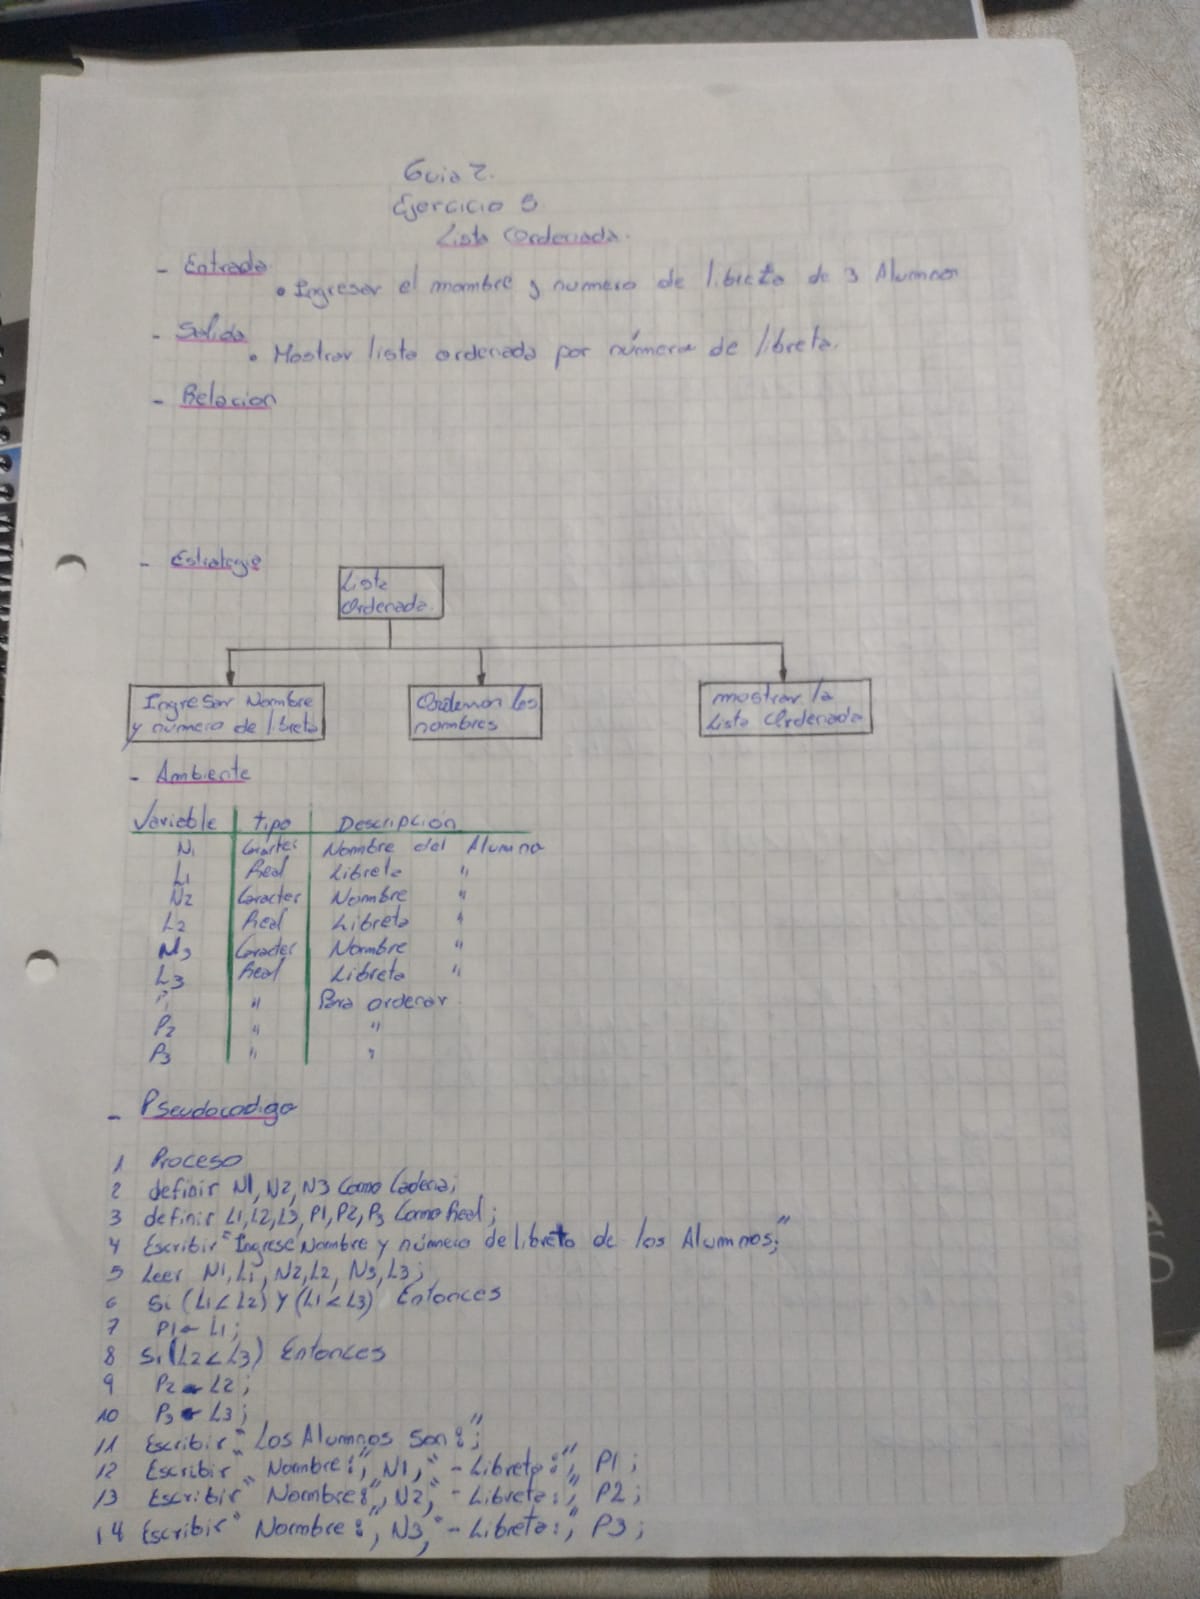 Guia 2.
Ejercicio 5
Lista Ordenada.
- Entrada
• Ingresar el nombre y numero de libreta de 3 Alumnos
- Salida
• Mostrar lista ordenada por número de libreta.
- Relacion
- Estrategia
Lista
Ordenada.
Ingresar Nombre
y número de libreta
Ordenar los
nombres
mostrar la
Lista Ordenada
- Ambiente
Variable tipo Descripción
N1 Caracter Nombre del Alumno
L1 Real Libreta "
N2 Caracter Nombre "
L2 Real Libreta "
N3 Caracter Nombre "
L3 Real Libreta "
P1 " Para ordenar
P2 " "
P3 " "
- Pseudocodigo
1 Proceso
2 definir N1, N2, N3 Como Cadena;
3 definir L1, L2, L3, P1, P2, P3 Como Real;
4 Escribir "Ingrese Nombre y número de libreta de los Alumnos;"
5 Leer N1, L1, N2, L2, N3, L3;
6 Si (L1 < L2) Y (L1 < L3) Entonces
7 P1 ← L1;
8 Si (L2 < L3) Entonces
9 P2 ← L2;
10 P3 ← L3;
11 Escribir "Los Alumnos Son:";
12 Escribir "Nombre:", N1, "- Libreta:", P1;
13 Escribir "Nombre:", N2, "- Libreta:", P2;
14 Escribir "Nombre:", N3, "- Libreta:", P3;